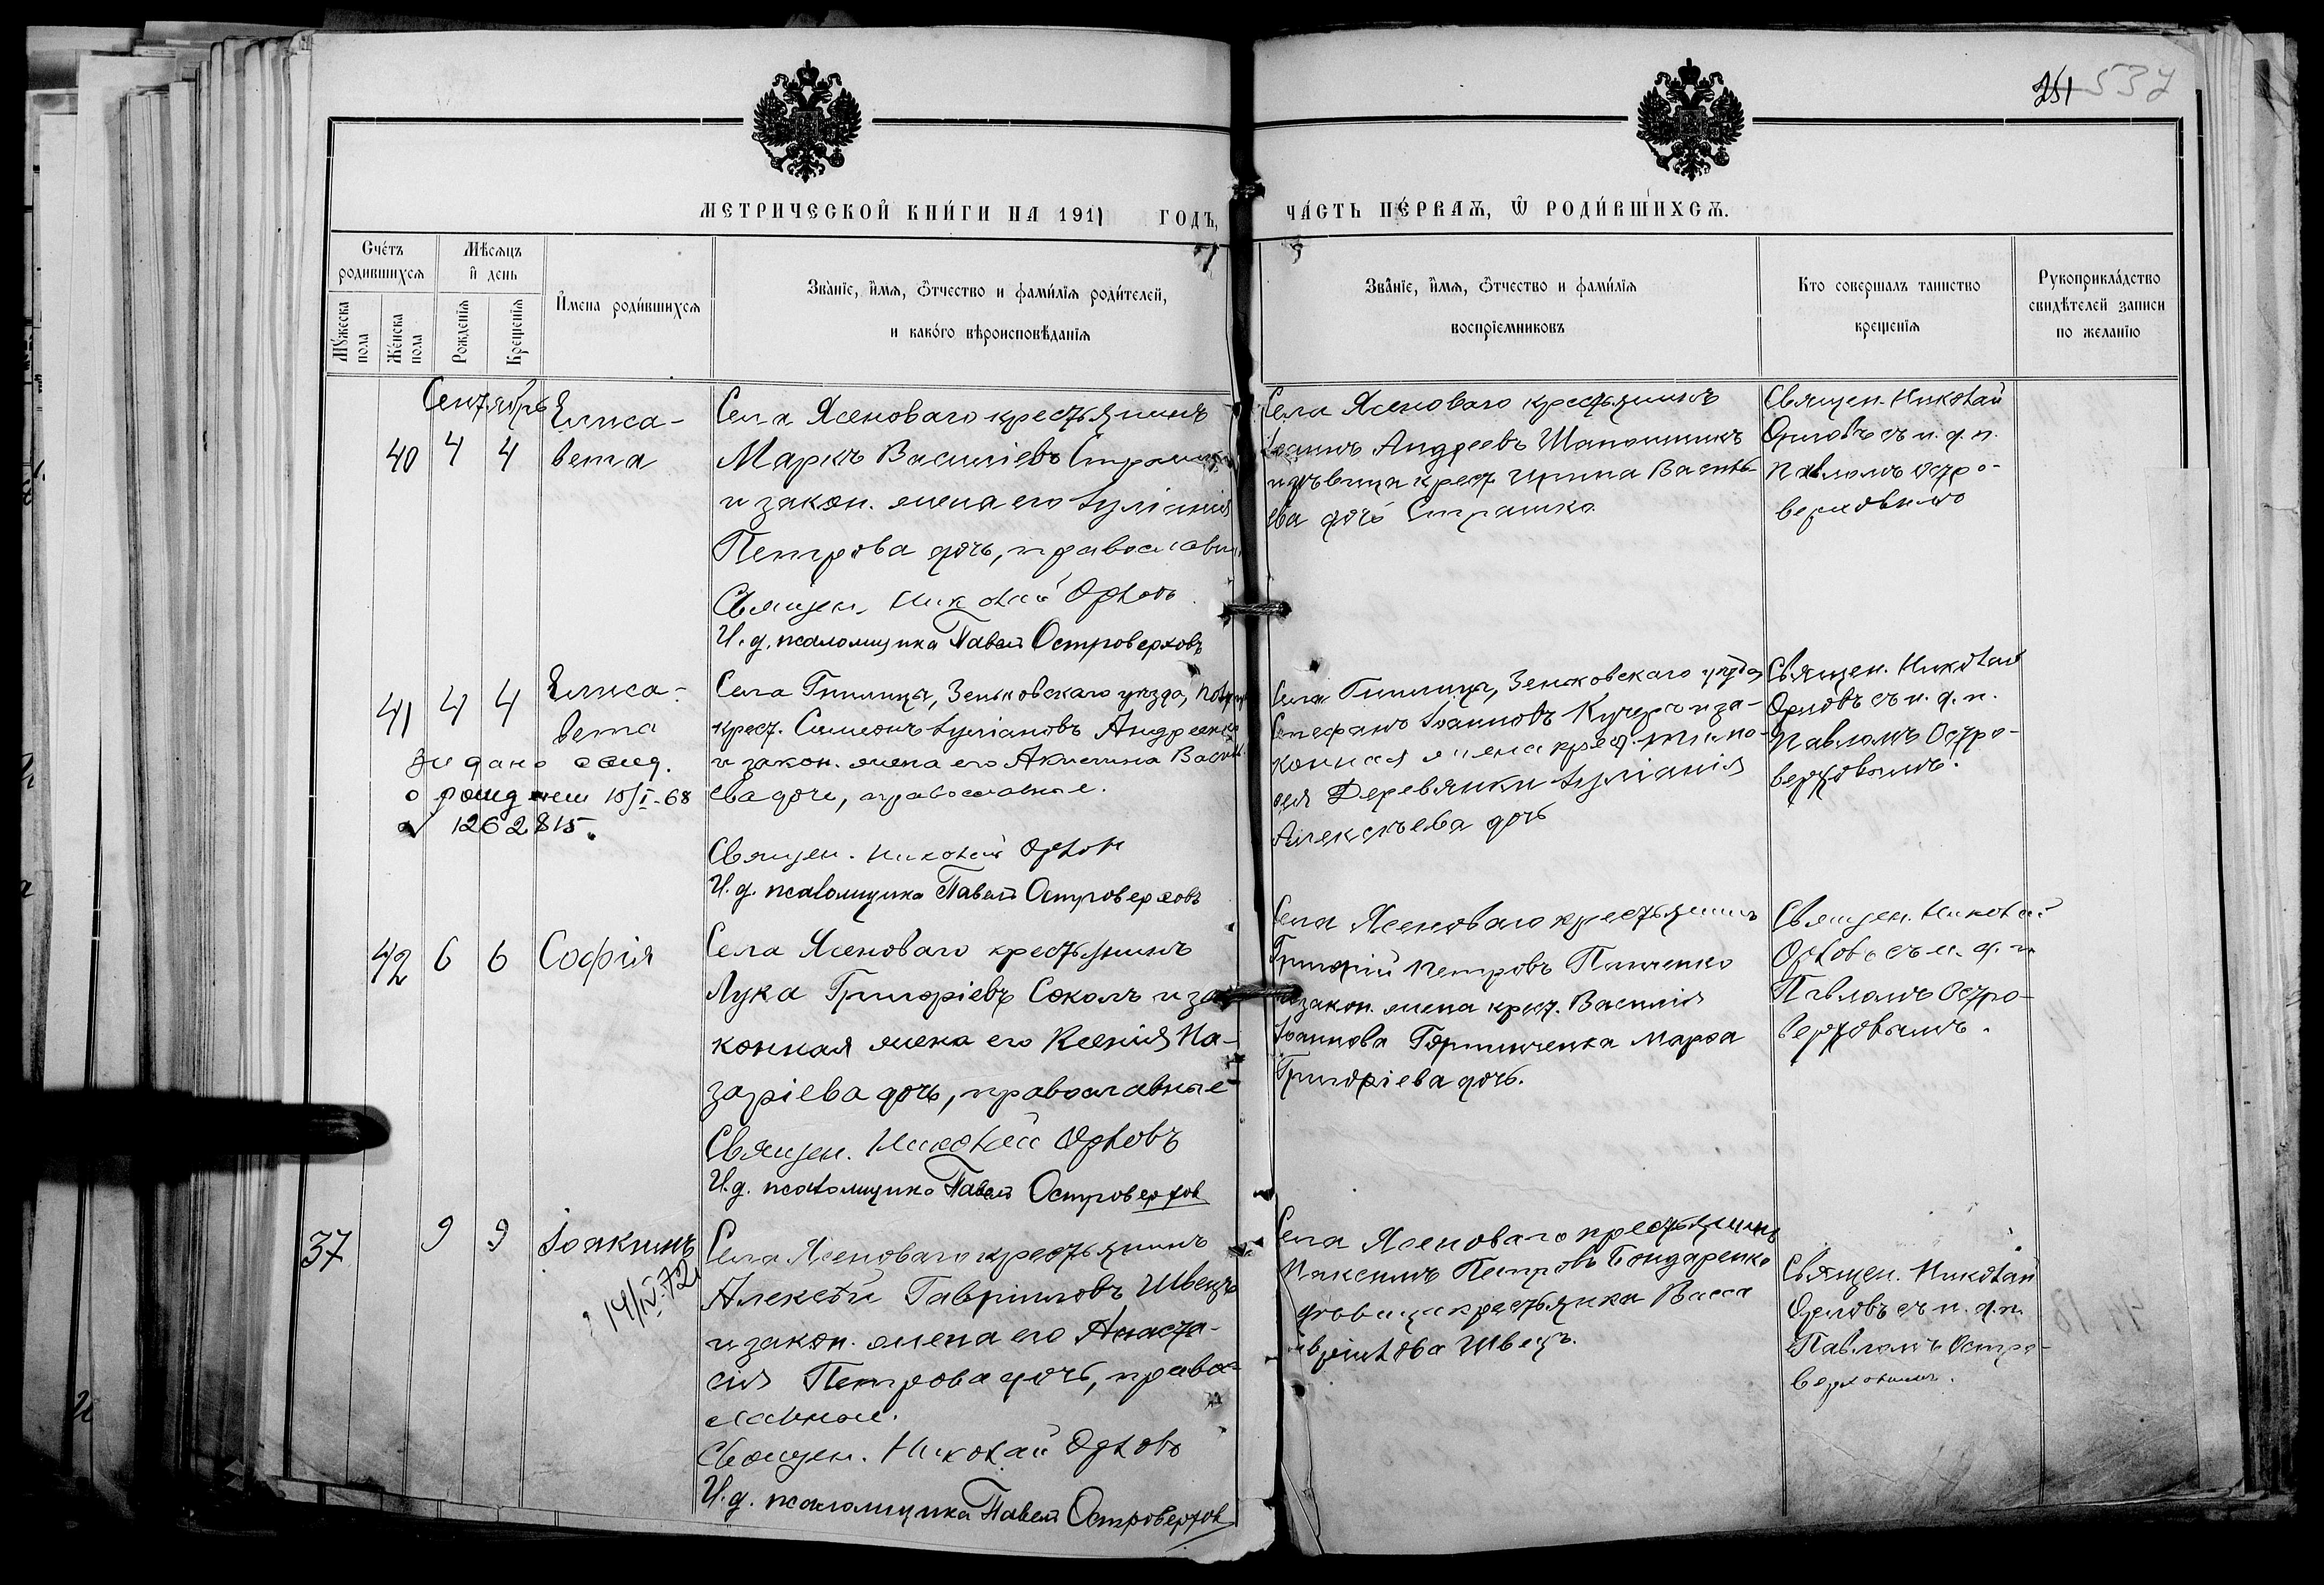 251 537
МЕТРИЧЕСКОЙ КНИ́ГИ НА 1911 ГОДЪ,
ЧА́СТЬ ПЕ́РВАѦ, Ѿ РОДИ́ВШИХСѦ.
Сче́тъ родившихсѧ
Мѣсѧцъ и҆ день
И҆мена роди́вшихсѧ
Зва́ніе, и҆мѧ, ѻтчество и фами́лїѧ роди́телей,
и како́го вѣроисповѣданїѧ
Мꙋжеска пола
Же́нска пола
Рожденїѧ
Крещенїѧ
Зва́ніе, и҆мѧ, ѻтчество и фами́лїѧ
воспріемниковъ
Кто совершалъ таинство
крещенїѧ
Рукоприкла́дство
свидѣтелей записи
по желанїю
Сентябрь
40 4 4
Елиса-
вета
Села Ясеноваго крестьянинъ
Маркъ Василіевъ
и закон. жена его Іуліанія
Петрова дочь, православн
Священ. Николай Орловъ
И. д. псаломщика Павелъ Островерховъ
Села Ясеноваго крестьянинъ
Іоаннъ Андреевъ
и дѣвица крест. Ирина Василь
ева дочь Страшко
Священ. Николай
Орловъ съ и. д. п.
Павломъ Остро-
верховымъ
41 4 4
Елиса-
вета
дано свид.
о рожд 10/I-68
№ 1262815.
Села Гнилица, Зеньковскаго уѣзда,
крест. Симеонъ Іуліановъ Андреенко
и закон. жена его Акилина Василь
ева дочь, православные.
Священ. Николай Орлов
И. д. псаломщика Павелъ Островерховъ
Села Гнилица, Зеньковскаго уѣзда,
Стефанъ Іоанновъ Кучеръ и за-
конная жена крест.
Деревянки Іуліанія
Алексѣева дочь
Священ. Николай
Орловъ съ и. д. п.
Павломъ Остро-
верховымъ.
42 6 6
Софія
Села Ясеноваго крестьянинъ
Лука Григоріевъ Соколъ и за
конная жена его Ксенія На-
заріева дочь, православные
Священ. Николай Орловъ
И. д. псаломщика Павелъ Островерхов
Села Ясеноваго крестьянинъ
Григорій Петровъ Панченко
и закон. жена крест. Василія
Іоаннова Марѳа
Григоріева дочь.
Священ. Николай
Орловъ съ и. д. п.
Павломъ Остро-
верховымъ.
37 9 9
Іоакимъ
14/IV-72
Села Ясеноваго крестьянинъ
Алексѣй Гавріиловъ Швецъ
и закон. жена его Анаста-
сія Петрова дочь, право-
славные.
Священ. Николай Орловъ
И. д. псаломщика Павелъ Островерхов
Села Ясеноваго крестьянинъ
Максимъ Петровъ Бондаренко
дѣвица крестьянка Васса
вріилова Швецъ.
Священ. Николай
Орловъ съ и. д. п.
Павломъ Остро-
верховымъ.